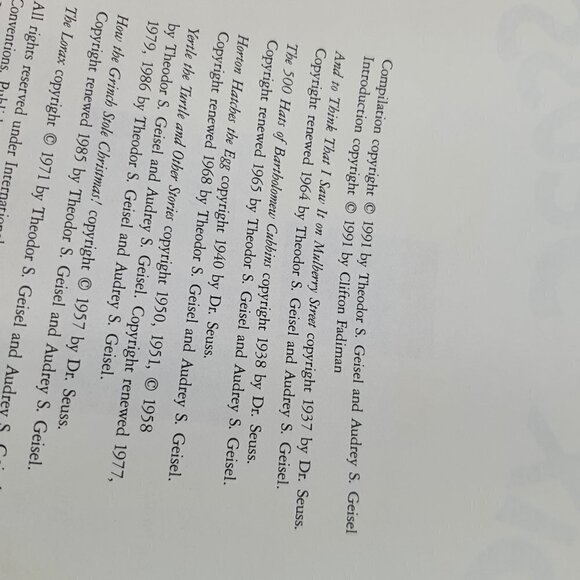 Compilation copyright © 1991 by Theodor S. Geisel and Audrey S. Geisel
Introduction copyright © 1991 by Clifton Fadiman
And to Think That I Saw It on Mulberry Street copyright 1937 by Dr. Seuss.
Copyright renewed 1964 by Theodor S. Geisel and Audrey S. Geisel.
The 500 Hats of Bartholomew Cubbins copyright 1938 by Dr. Seuss.
Copyright renewed 1965 by Theodor S. Geisel and Audrey S. Geisel.
Horton Hatches the Egg copyright 1940 by Dr. Seuss.
Copyright renewed 1968 by Theodor S. Geisel and Audrey S. Geisel.
Yertle the Turtle and Other Stories copyright 1950, 1951, © 1958
by Theodor S. Geisel and Audrey S. Geisel. Copyright renewed 1977,
1979, 1986 by Theodor S. Geisel and Audrey S. Geisel.
How the Grinch Stole Christmas! copyright © 1957 by Dr. Seuss.
Copyright renewed 1985 by Theodor S. Geisel and Audrey S. Geisel.
The Lorax copyright © 1971 by Theodor S. Geisel and Audrey S. Geisel.
All rights reserved under International
Conventions.